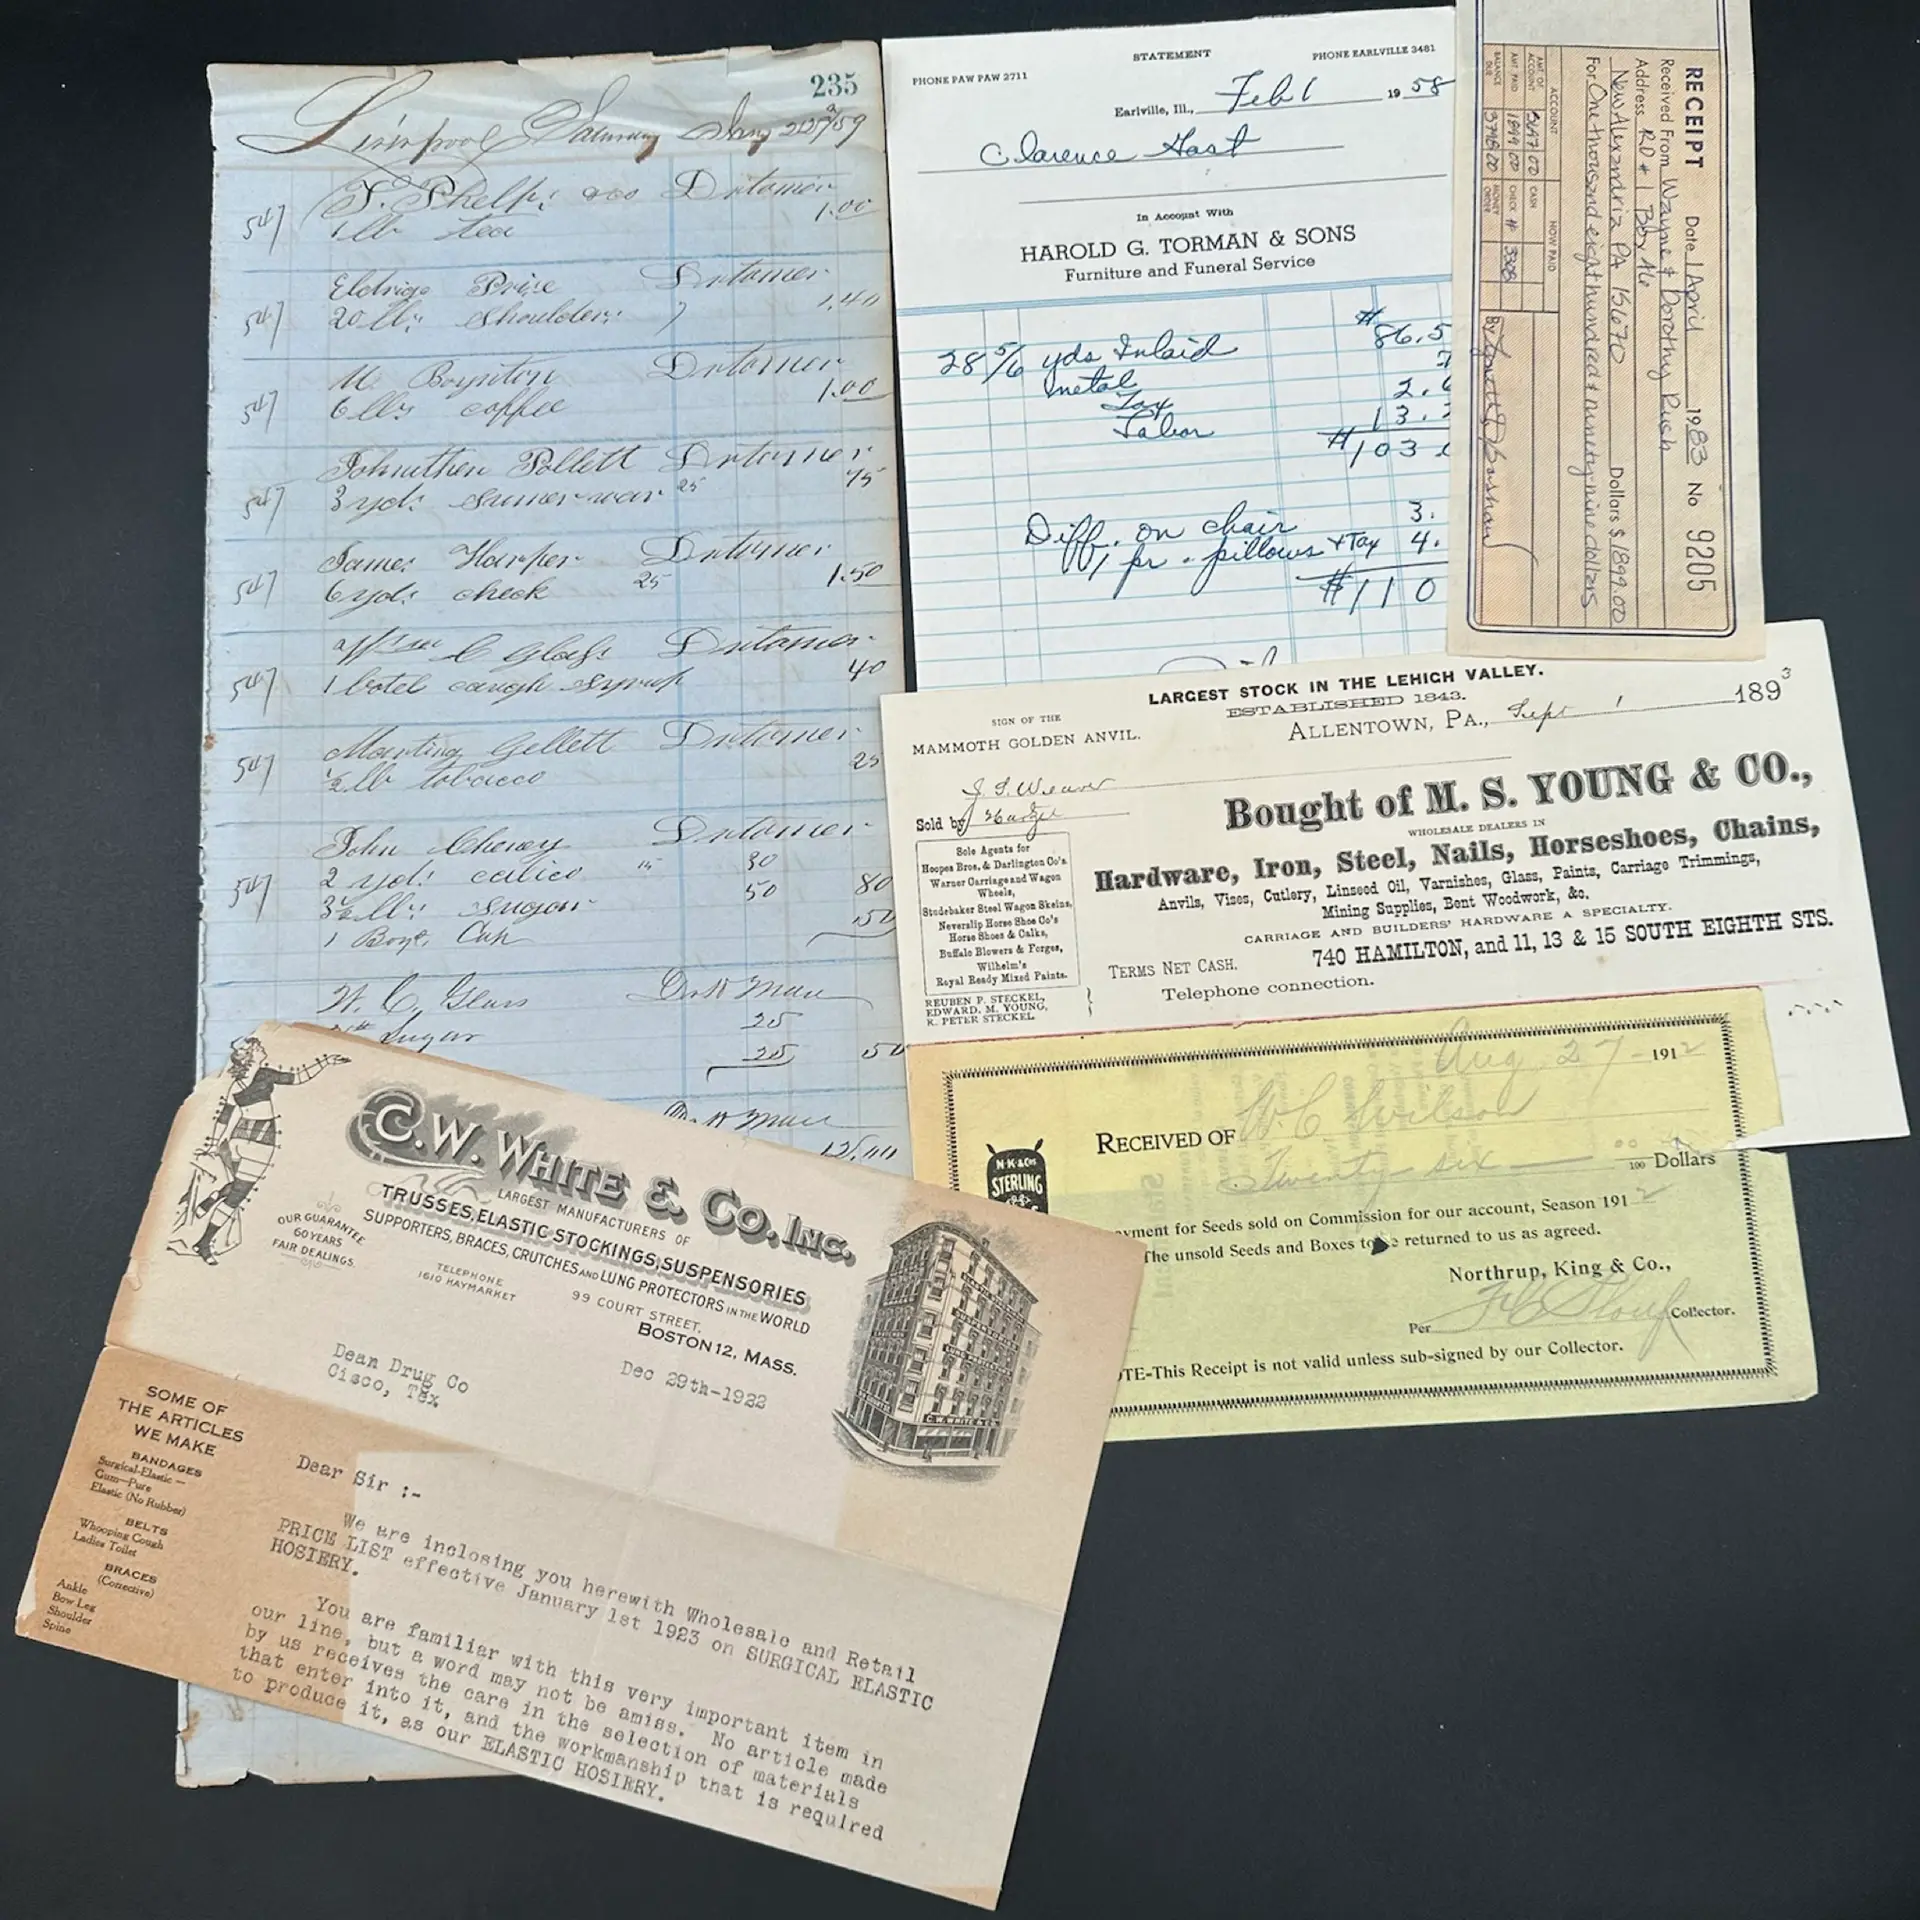 235
Liverpool Saturday
547 T. Phelps & Co
1 lb tea 1.00
Eldridge Price
547 20 lbs shoulders 1,40
Boynton 1.00
547 6 lbs coffee
Johnathen Pollett 75
547 3 yds 25
James Harper
547 6 yds check 25 1.50
Wm C Glass 40
547 1 botel caugh syrup
Gellett 25
547 1/2 lb tobacco
John Cheney
547 2 yds calico 15 30
3 1/2 lbs sugar 50 80
1 Boys Cap 50
W. C. Glass
Sugar 25
25 50
STATEMENT
PHONE PAW PAW 2711 PHONE EARLVILLE 3481
Earlville, Ill., Feb 1 1958
Clarence Hast
In Account With
HAROLD G. TORMAN & SONS
Furniture and Funeral Service
28 5/6 yds Inlaid # 86.5
metal
Tax 2.
Labor 13.
#103
Diff. on chair 3.
1 pr. pillows + Tax 4.
#110
RECEIPT Date 1 April 1983 No 9205
Received From Wayne & Dorothy Rush
Address RD # 1 Box 46
New Alexandria PA 15670 Dollars $ 1899.00
For One thousand eight hundred & ninety nine dollars
ACCOUNT HOW PAID
AMT. OF ACCOUNT 5697 00 CASH
AMT. PAID 1899 00 CHECK # 3308
BALANCE DUE 3798 00 MONEY ORDER
By
LARGEST STOCK IN THE LEHIGH VALLEY.
ESTABLISHED 1843.
SIGN OF THE
MAMMOTH GOLDEN ANVIL.
ALLENTOWN, PA., Sept 1 1893
J. F. Weaver
Sold by
Bought of M. S. YOUNG & CO.,
WHOLESALE DEALERS IN
Hardware, Iron, Steel, Nails, Horseshoes, Chains,
Anvils, Vises, Cutlery, Linseed Oil, Varnishes, Glass, Paints, Carriage Trimmings,
Mining Supplies, Bent Woodwork, &c.
CARRIAGE AND BUILDERS' HARDWARE A SPECIALTY.
740 HAMILTON, and 11, 13 & 15 SOUTH EIGHTH STS.
TERMS NET CASH.
Telephone connection.
Sole Agents for
Hoopes Bros. & Darlington Co's.
Warner Carriage and Wagon
Wheels,
Studebaker Steel Wagon Skeins,
Neverslip Horse Shoe Co's
Horse Shoes & Calks,
Buffalo Blowers & Forges,
Wilhelm's
Royal Ready Mixed Paints.
REUBEN P. STECKEL,
EDWARD. M. YOUNG,
R. PETER STECKEL
Aug 27 - 1912
N·K·& Co's
STERLING
RECEIVED OF W. C. Wilson
Twenty six 00/100 Dollars
yment for Seeds sold on Commission for our account, Season 1912
The unsold Seeds and Boxes to be returned to us as agreed.
Northrup, King & Co.,
Per Collector.
OTE-This Receipt is not valid unless sub-signed by our Collector.
C. W. WHITE & CO. INC.
LARGEST MANUFACTURERS OF
TRUSSES, ELASTIC STOCKINGS, SUSPENSORIES
SUPPORTERS, BRACES, CRUTCHES AND LUNG PROTECTORS IN THE WORLD
OUR GUARANTEE
60 YEARS
FAIR DEALINGS
TELEPHONE
1610 HAYMARKET
99 COURT STREET,
BOSTON 12, MASS.
C. W. WHITE & CO.
Dean Drug Co
Cisco, Tex
Dec 29th-1922
SOME OF
THE ARTICLES
WE MAKE
BANDAGES
Surgical-Elastic —
Gum—Pure
Elastic (No Rubber)
BELTS
Whooping Cough
Ladies Toilet
BRACES
(Corrective)
Ankle
Bow Leg
Shoulder
Spine
Dear Sir :-
We are inclosing you herewith Wholesale and Retail
PRICE LIST effective January 1st 1923 on SURGICAL ELASTIC
HOSIERY.
You are familiar with this very important item in
our line, but a word may not be amiss. No article made
by us receives the care in the selection of materials
that enter into it, and the workmanship that is required
to produce it, as our ELASTIC HOSIERY.